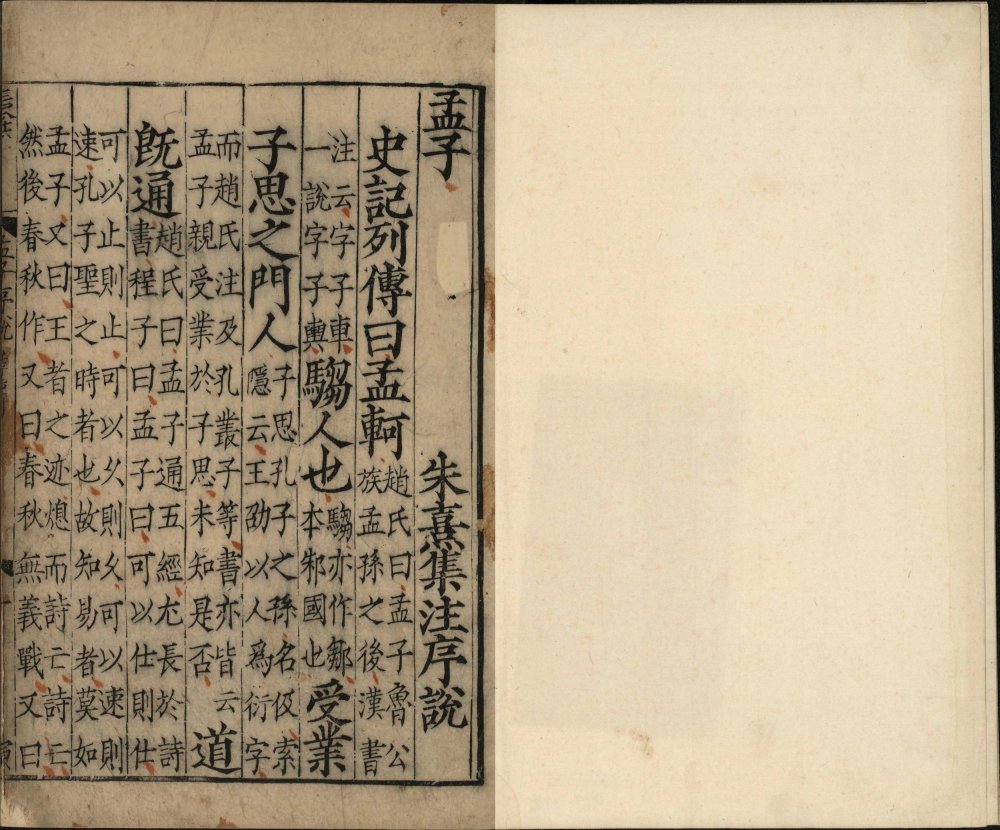 孟子 朱熹集注序說
史記列傳曰孟軻 趙氏曰孟子魯公
族孟孫之後漢書
注云字子車
一說字子輿
騶人也
騶亦作鄒
本邾國也
受業
子思之門人
子思孔子之孫名伋索
隱云王劭以人爲衍字
而趙氏注及孔叢子等書亦皆云
孟子親受業於子思未知是否
道
旣通
趙氏曰孟子通五經尤長於詩
書程子曰孟子曰可以仕則仕
可以止則止可以久則久可以速則
速孔子聖之時者也故知易者莫如
孟子又曰王者之迹熄而詩亡詩亡
然後春秋作又曰春秋無義戰又曰